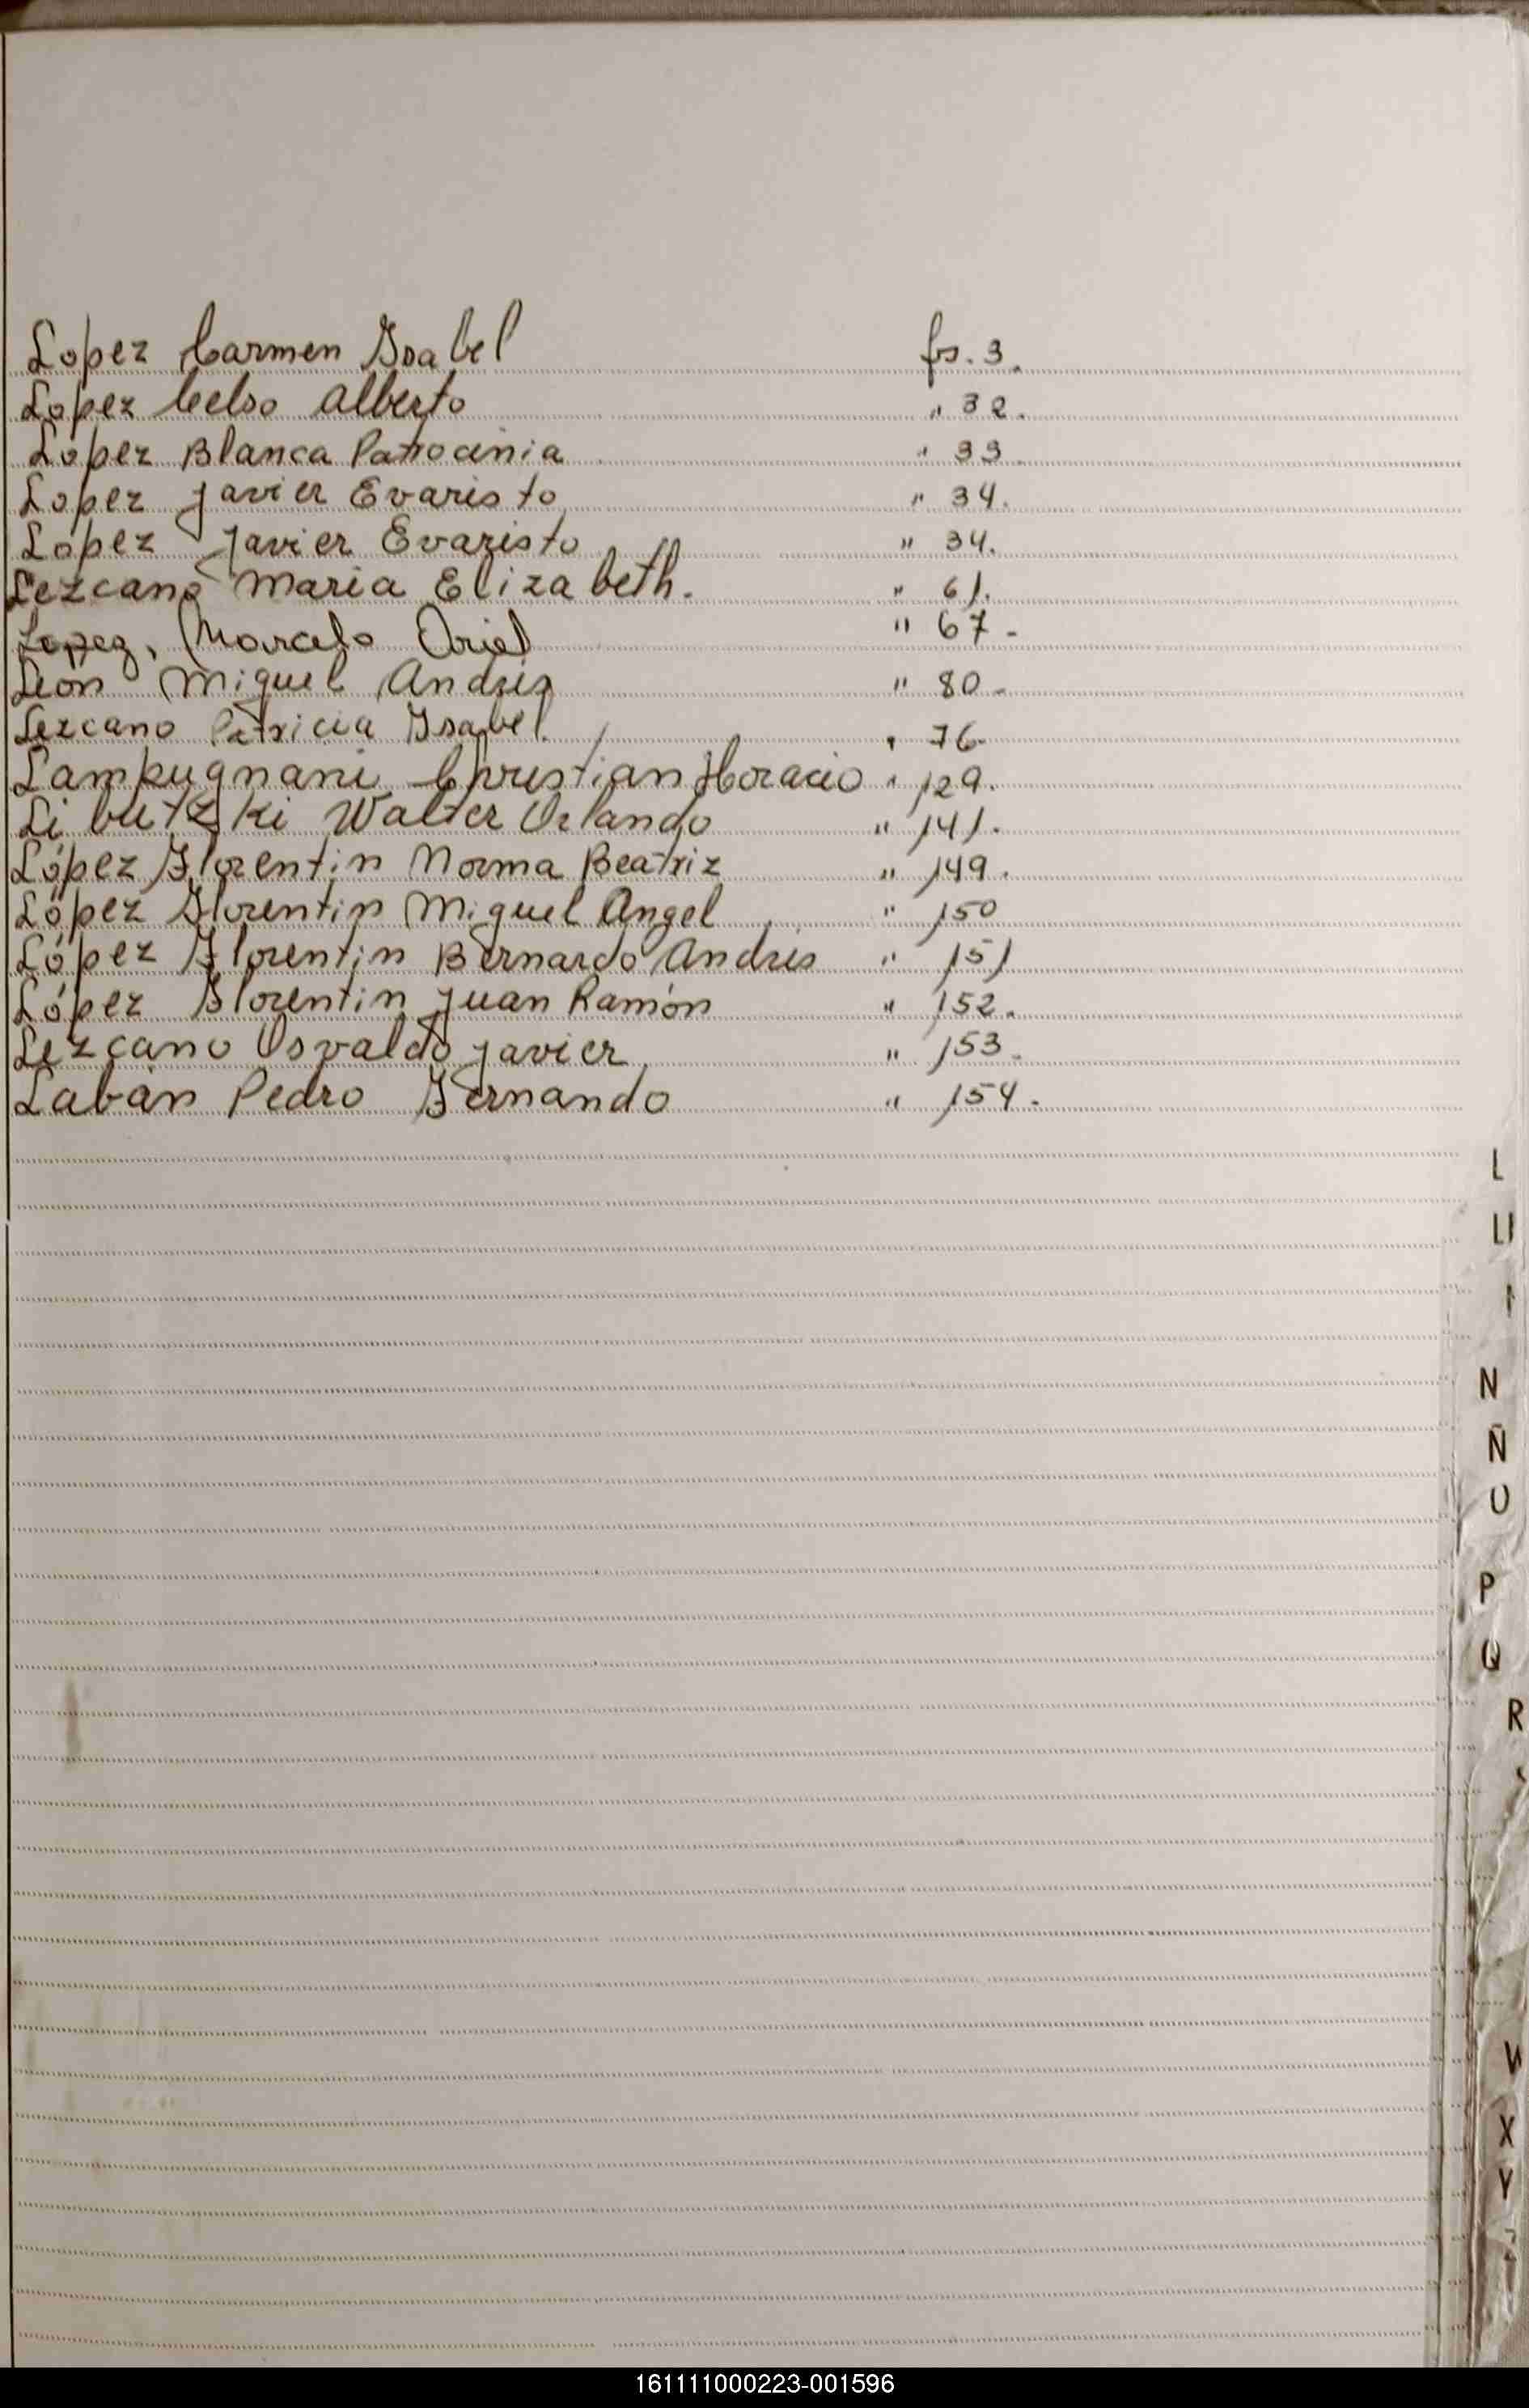 Lopez Carmen Ysabel fs. 3.
Lopez Celso Alberto " 32.
Lopez Blanca Patrocinia " 33
Lopez Javier Evaristo " 34.
Lopez Javier Evaristo " 34.
Lezcano Maria Elizabeth. " 61.
Lopez, Marcelo Oriel " 67-
Leon Miguel Andrés " 80-
Lezcano Patricia Ysabel. " 76-
Lampugnani Christian Horacio " 129.
Libutzki Walter Orlando " 141.
López Florentin Norma Beatriz " 149.
López Florentin Miguel Angel " 150
López Florentin Bernardo Andrés " 151
López Florentin Juan Ramón " 152.
Lezcano Osvaldo Javier " 153-
Labán Pedro Fernando " 154-
L
Ll
N
Ñ
O
P
Q
R
X
Y
161111000223-001596